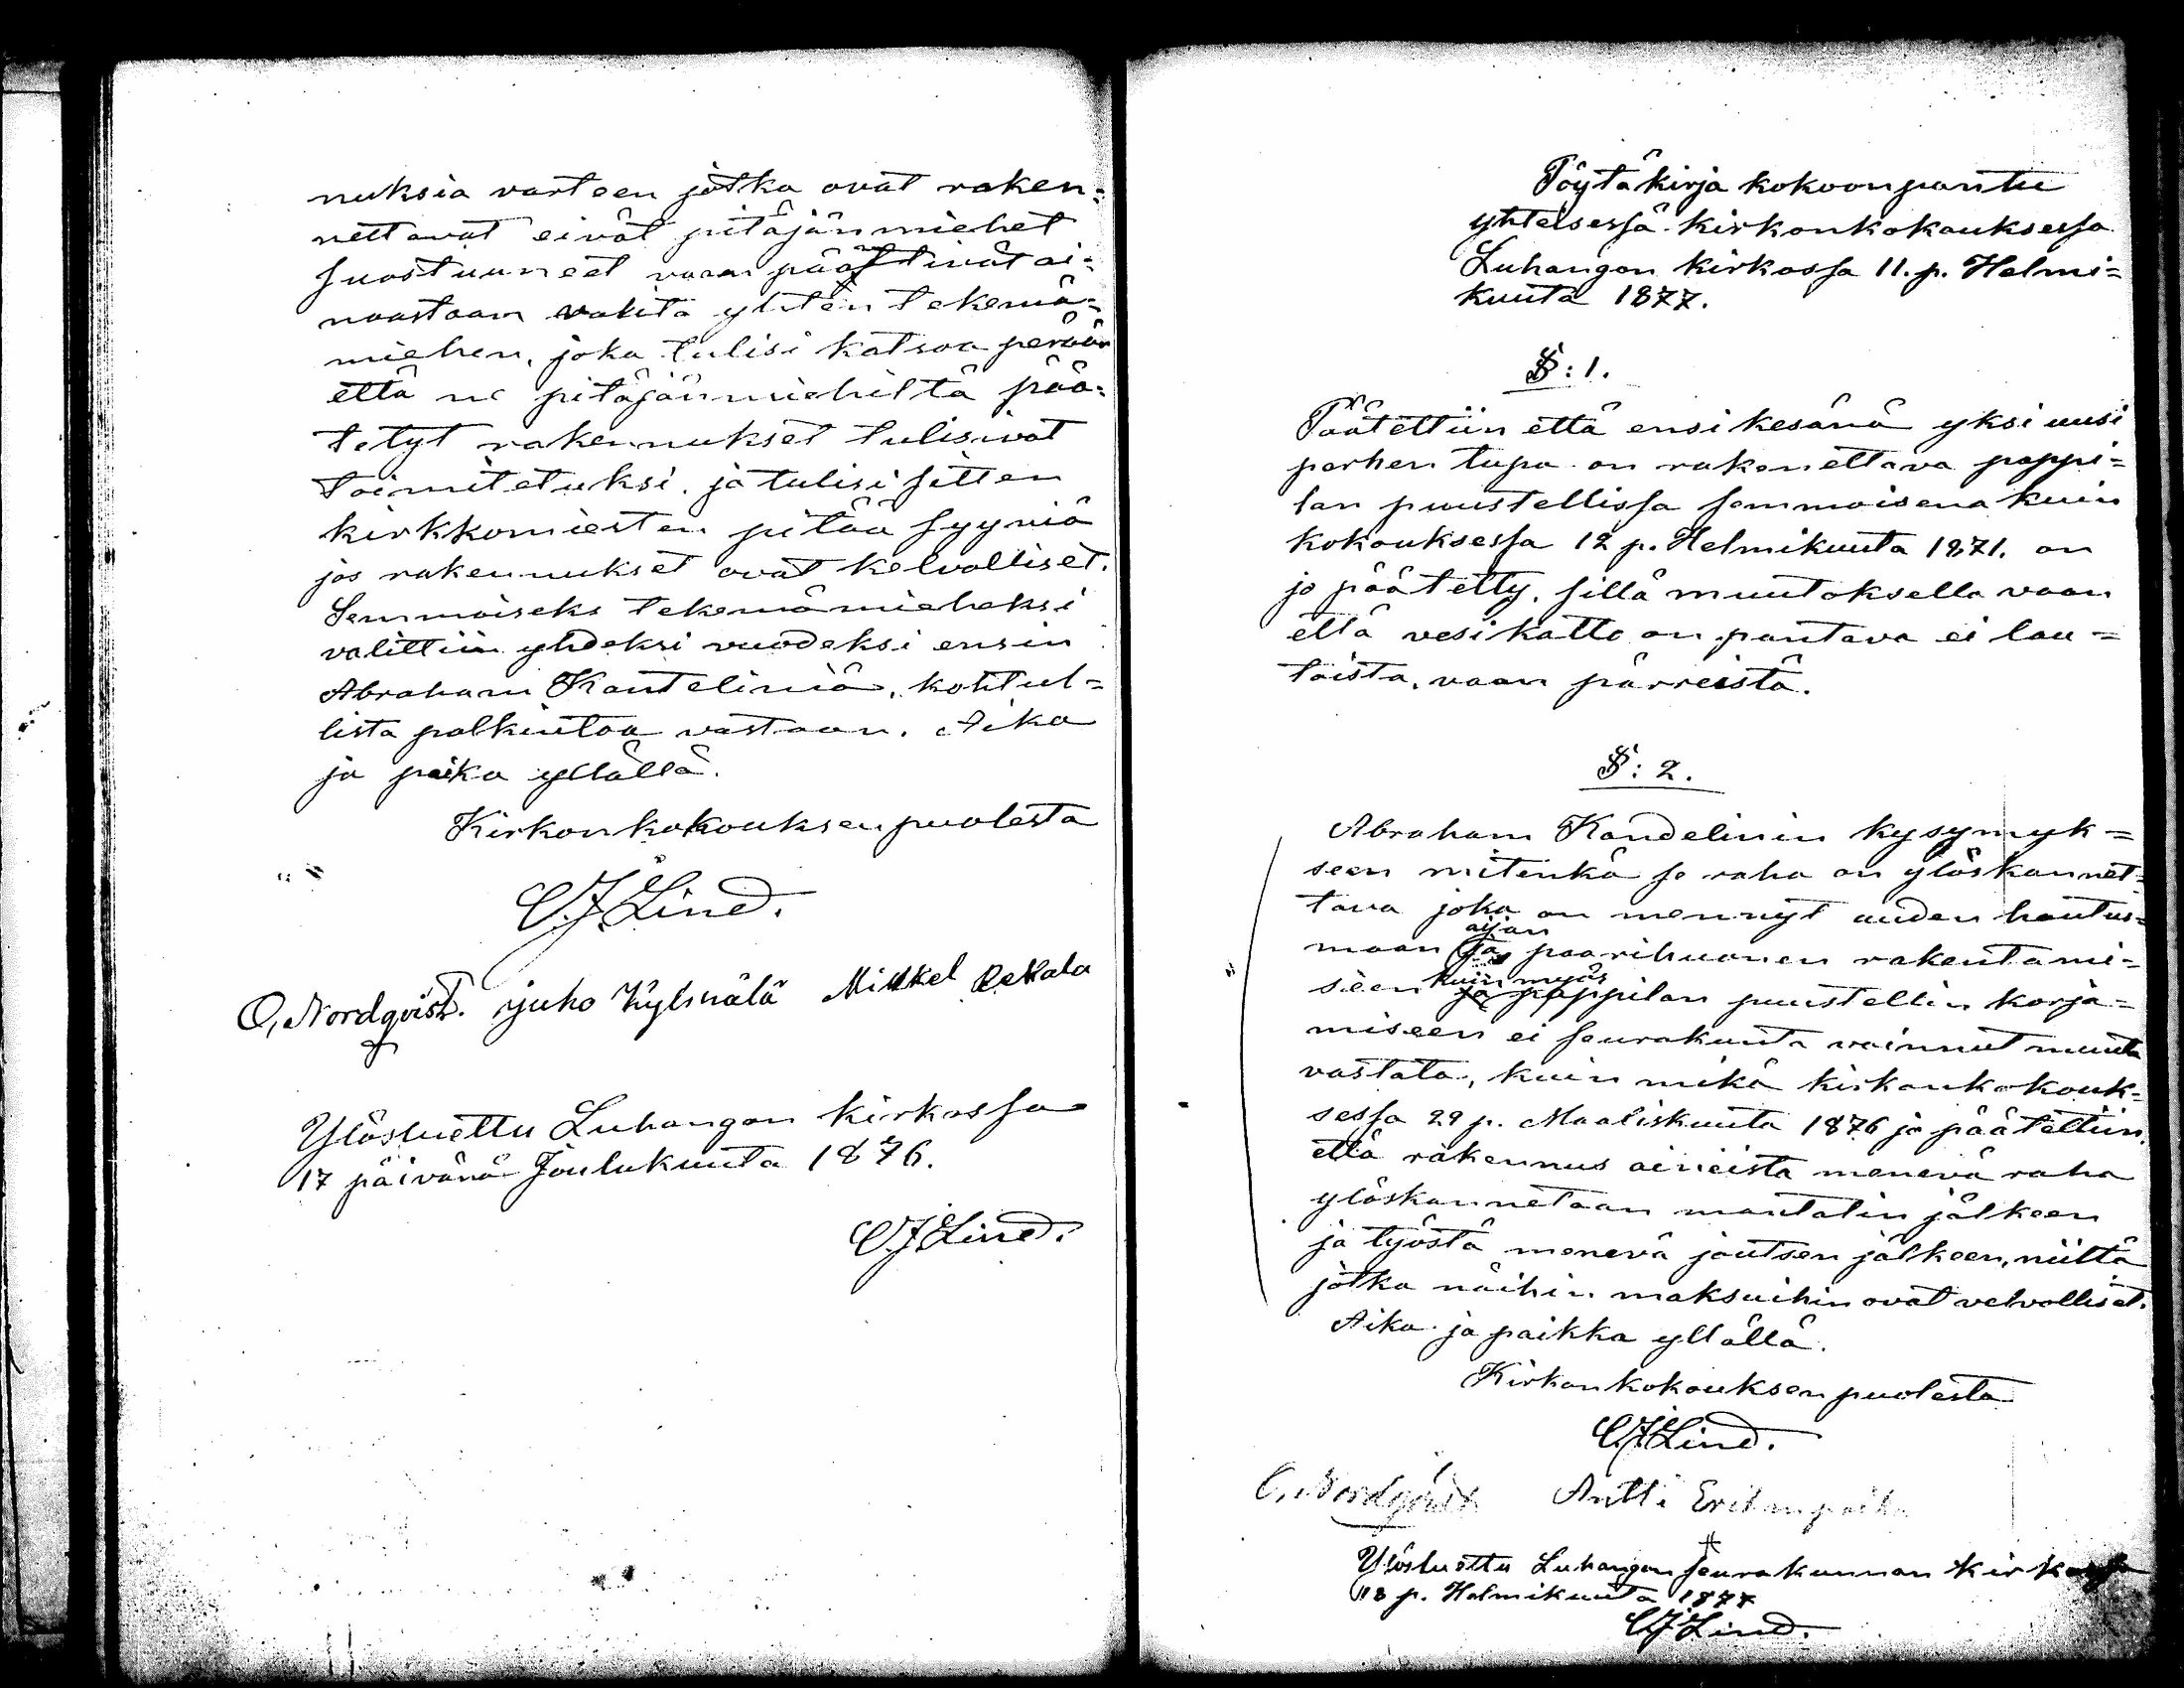 nuksia varteen jotka ovat raken=
nettavat eivät pitäjänmiehet
suostuuneet vaan päättivät ai=
noastaan valita yhten tekemä=
miehen, joka tulisi katsoa perään
että ne pitäjänmiehiltä pää=
tetyt rakennukset tulisivat
toimitetuksi, ja tulisi sitten
kirkkomiesten pitää syyniä
jos rakennukset ovat kelvolliset.
Semmoiseks tekemämieheksi
valittiin yhdeksi vuodeksi ensin
Abraham Kantelinia, kohtul=
lista palkintoa vastaan. Aika
ja paika yllällä.
Kirkonkokouksen puolesta
C.J. Lind.
O, Nordqvist. juho Kylmälä Mikkel
Ylösluettu Luhangan kirkossa
17 päivänä Joulukuuta 1876.
C.J. Lind.
Pöytäkirja kokoonpantu
yhteisessä kirkonkokouksessa
Luhangon kirkossa 11. p. Helmi=
kuuta 1877.
§: 1.
Päätettiin että ensi kesänä yksi uusi
perhen tupa on rakenettava pappi=
lan puustellissa semmoisena kuin
kokouksessa 12 p. Helmikuuta 1871. on
jo päätetty, sillä muutoksella vaan
että vesikatto on pantava ei lau=
toista, vaan päreistä.
§: 2.
Abraham Kandelinin kysymyk=
seen mitenkä se raha on ylöskannet=
tava joka on mennyt uuden hautus=
maan aijan ja paarihuonen rakentami=
seen kuin myös pappilan puustellin korja=
miseen ei seurakunta voinnut muuta
vastata, kuin mikä kirkonkokouk=
sessa 29 p. Maaliskuuta 1876 jo päätettiin,
että rakennus aineista menevä raha
ylöskannetaan mantalin jälkeen
ja työstä menevä joutsen jälkeen, niiltä
jotka näihin maksuihin ovat velvolliset.
Aika ja paikka yllällä.
Kirkonkokouksen puolesta
C.J. Lind.
O, Nordqvist Antti
Ylösluettu Luhangan seurakunnan kirkossa
18 p. Helmikuuta 1877
C.J. Lind.